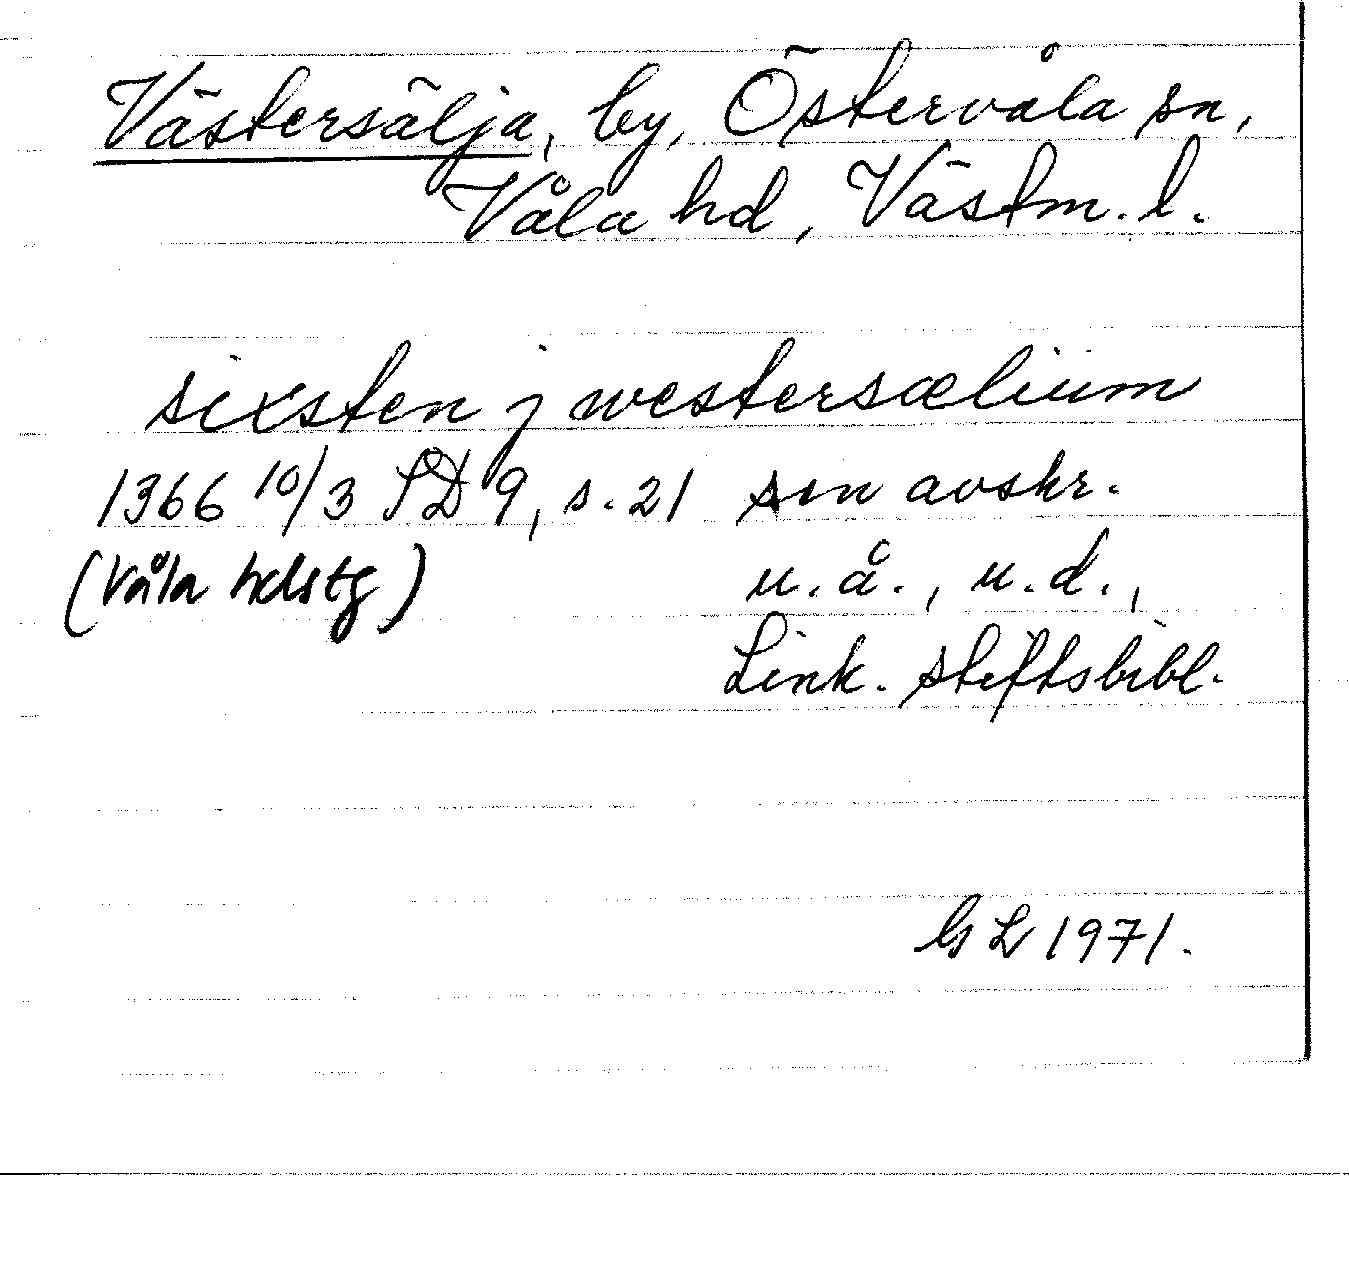 Västersälja, by, Östervåla sn,
Våla hd, Västm. l.
sixsten j westersælium
1366 10/3 SD 9, s. 21 sen avskr.
(Våla hdstg) u.å., u.d.,
Link. stiftsbibl.
GL 1971.